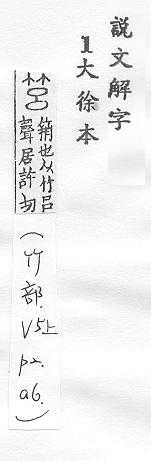 說文解字
1大徐本
筥
䈰也从竹呂
聲居許切
(竹部.
V5上
p2.
a6.)